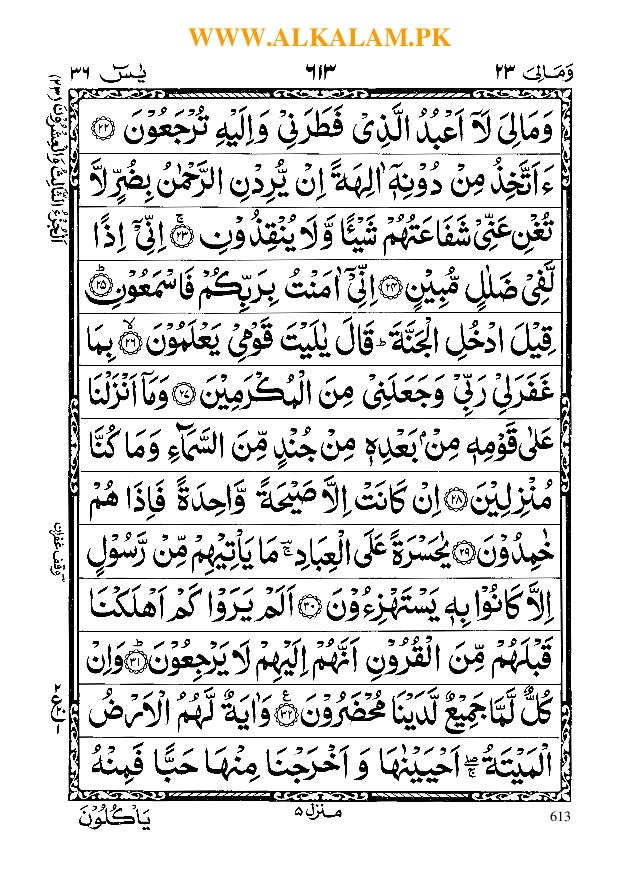 WWW.ALKALAM.PK
وَمَالِیَ ٢٣
٦١٣
یٰسٓ ٣٦
اَلْجُزْءُ الثَّالِثُ وَالْعِشْرُوْنَ (٢٣)
وَمَالِیَ لَاۤ اَعْبُدُ الَّذِیْ فَطَرَنِیْ وَاِلَیْهِ تُرْجَعُوْنَ ۝٢٢
ءَاَتَّخِذُ مِنْ دُوْنِهٖۤ اٰلِهَةً اِنْ یُّرِدْنِ الرَّحْمٰنُ بِضُرٍّ لَّا
تُغْنِ عَنِّیْ شَفَاعَتُهُمْ شَیْـًٔا وَّلَا یُنْقِذُوْنِ ۝٢٣ۚ اِنِّیْۤ اِذًا
لَّفِیْ ضَلٰلٍ مُّبِیْنٍ ۝٢٤ اِنِّیْۤ اٰمَنْتُ بِرَبِّكُمْ فَاسْمَعُوْنِ ۝٢٥ؕ
قِیْلَ ادْخُلِ الْجَنَّةَ ؕ قَالَ یٰلَیْتَ قَوْمِیْ یَعْلَمُوْنَ ۝٢٦ۙ بِمَا
غَفَرَ لِیْ رَبِّیْ وَجَعَلَنِیْ مِنَ الْمُكْرَمِیْنَ ۝٢٧ وَمَاۤ اَنْزَلْنَا
عَلٰی قَوْمِهٖ مِنْۢ بَعْدِهٖ مِنْ جُنْدٍ مِّنَ السَّمَآءِ وَمَا كُنَّا
مُنْزِلِیْنَ ۝٢٨ اِنْ كَانَتْ اِلَّا صَیْحَةً وَّاحِدَةً فَاِذَا هُمْ
خٰمِدُوْنَ ۝٢٩ یٰحَسْرَةً عَلَی الْعِبَادِ ۚ مَا یَاْتِیْهِمْ مِّنْ رَّسُوْلٍ
اِلَّا كَانُوْا بِهٖ یَسْتَهْزِءُوْنَ ۝٣٠ اَلَمْ یَرَوْا كَمْ اَهْلَكْنَا
قَبْلَهُمْ مِّنَ الْقُرُوْنِ اَنَّهُمْ اِلَیْهِمْ لَا یَرْجِعُوْنَ ۝٣١ؕ وَاِنْ
كُلٌّ لَّمَّا جَمِیْعٌ لَّدَیْنَا مُحْضَرُوْنَ ۝٣٢ۧ وَاٰیَةٌ لَّهُمُ الْاَرْضُ
الْمَیْتَةُ ۖۚ اَحْیَیْنٰهَا وَ اَخْرَجْنَا مِنْهَا حَبًّا فَمِنْهُ
وقف غفران
منزل ٥
یَاْكُلُوْنَ
613